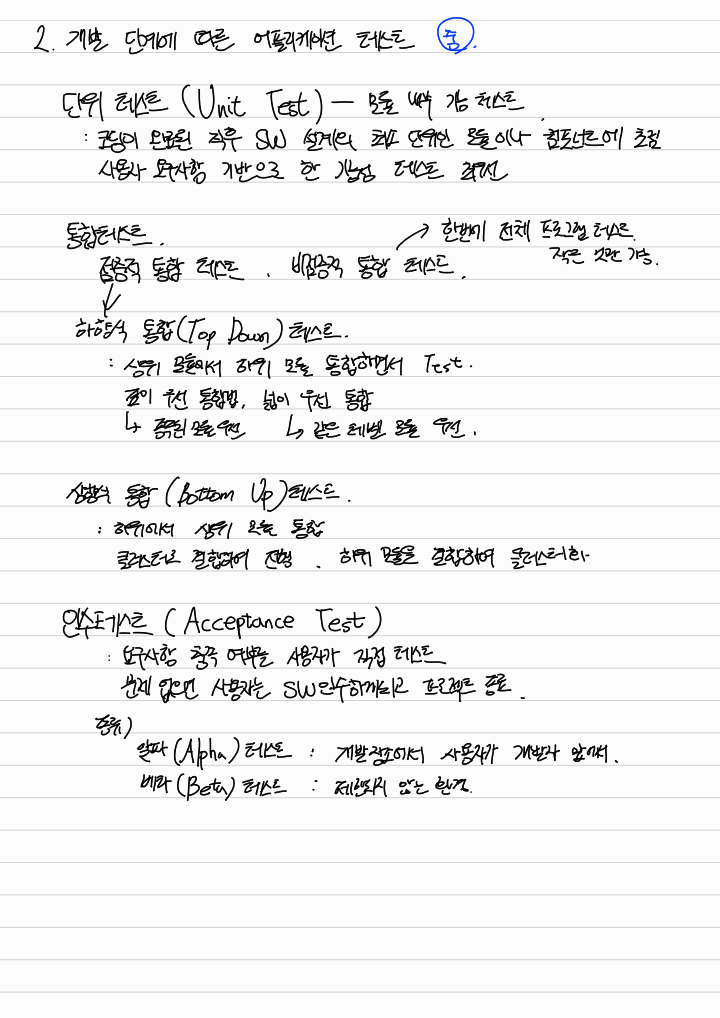 2. 개발 단계에 따른 어플리케이션 테스트 중.
단위 테스트 (Unit Test) — 모듈 내부 감 테스트.
: 코딩이 완료된 직후 SW 설계의 최소 단위인 모듈이나 컴포넌트에 초점
사용자 요구사항 기반으로 한 기능성 테스트 최우선
통합테스트.
→ 한번에 전체 프로그램 테스트.
작은 것만 가능.
점증적 통합 테스트. 비점증적 통합 테스트.
하향식 통합(Top Down)테스트.
: 상위 모듈에서 하위 모듈 통합하면서 Test.
깊이 우선 통합법, 넓이 우선 통합
↳ 종속된 모듈 우선 ↳ 같은 레벨 모듈 우선.
상향식 통합 (Bottom Up)테스트.
: 하위에서 상위 모듈 통합
클러스터로 결합하여 진행. 하위 모듈을 결합하여 클러스터화
인수테스트 (Acceptance Test)
: 요구사항 충족 여부를 사용자가 직접 테스트
문제 없으면 사용자는 SW인수하게되고 프로젝트 종료.
종류)
알파(Alpha)테스트 : 개발장소에서 사용자가 개발자 앞에서.
베타(Beta)테스트 : 제한되지 않는 환경.